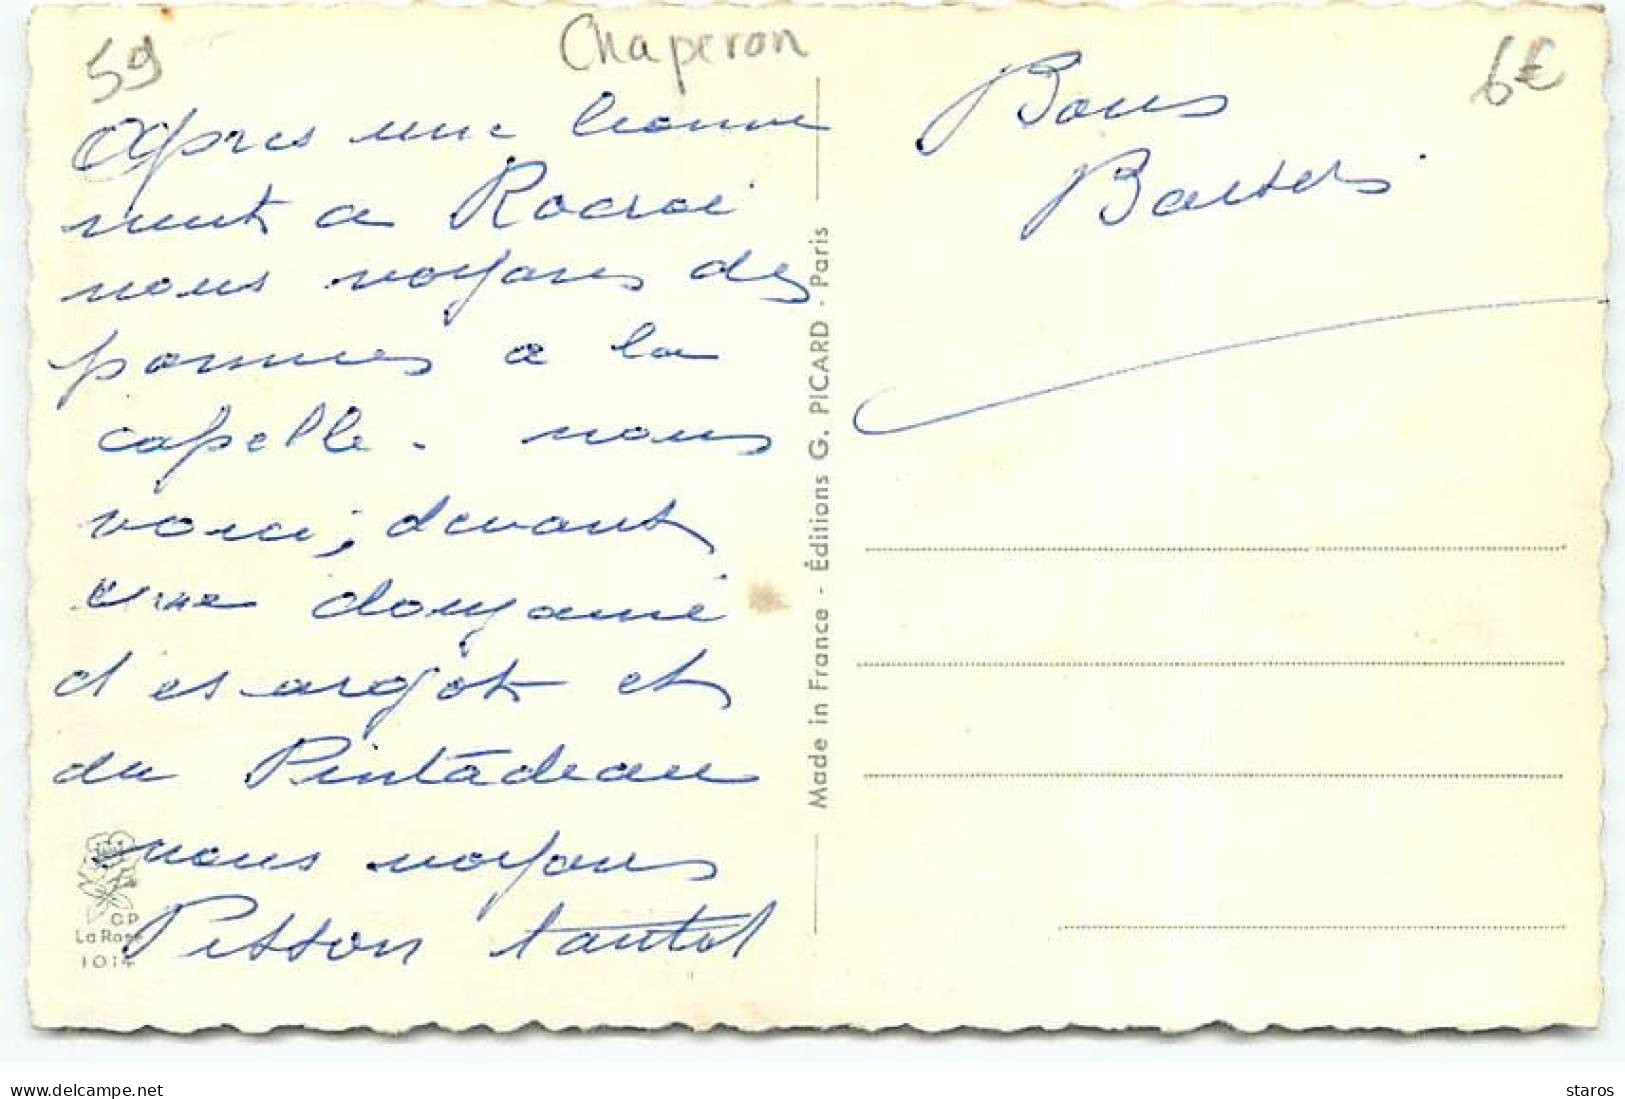 59
Chaperon
6€
Après une bonne
nuit a Rocroi
nous voyons des
pommes a la
capelle. nous
voici, devant
une
d'escargot et
du Pintadeau
nous voyons
Pisson tantot
Bons
Baisers
Made in France - Éditions G. PICARD - Paris
GP
La Rose
1014
delcampe.net
staros